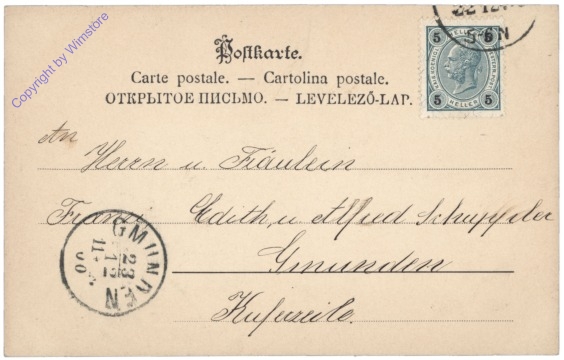 Copyright by Wimstore
22 12
5 5
5 HELLER 5
Postkarte.
Carte postale. — Cartolina postale.
ОТКРЫТОЕ ПИСЬМО. — LEVELEZŐ-LAP.
An
Herrn u. Fräulein
Edith u. Alfred
Gmunden
GMUNDEN
23
12
11
00